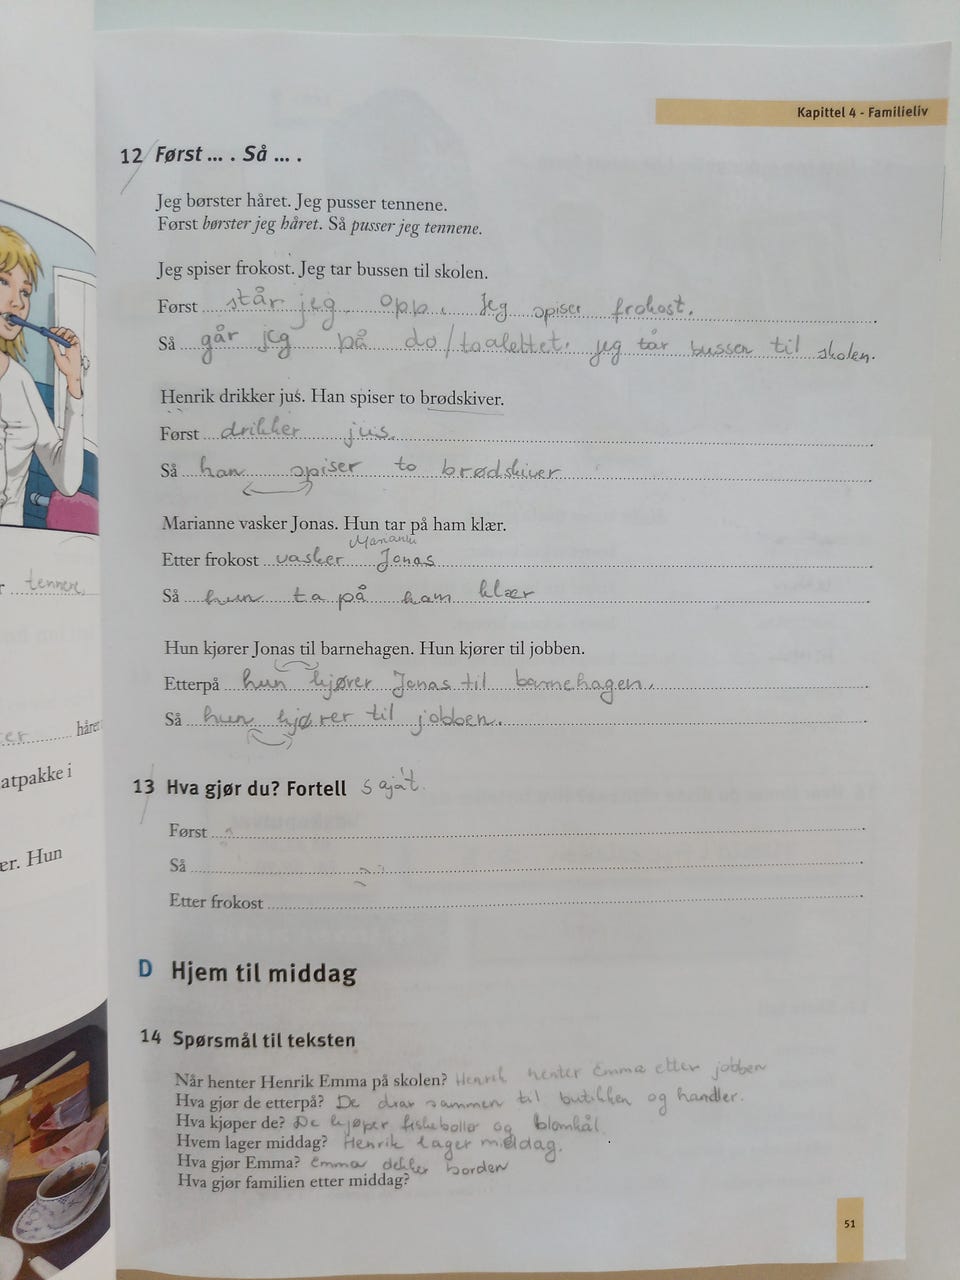 Kapittel 4 - Familieliv
12 Først ... . Så ... .
Jeg børster håret. Jeg pusser tennene.
Først børster jeg håret. Så pusser jeg tennene.
Jeg spiser frokost. Jeg tar bussen til skolen.
Først står jeg opp. Jeg spiser frokost.
Så går jeg på do/toalettet. jeg tar bussen til skolen.
Henrik drikker jus. Han spiser to brødskiver.
Først drikker jus.
Så han spiser to brødskiver
Marianne vasker Jonas. Hun tar på ham klær.
Etter frokost vasker Jonas
tennene.
Så hun ta på ham klær
Hun kjører Jonas til barnehagen. Hun kjører til jobben.
Etterpå hun kjører Jonas til barnehagen.
Så hun kjører til jobben.
håret
atpakke i
er. Hun
13 Hva gjør du? Fortell saját
Først
Så
Etter frokost
D Hjem til middag
14 Spørsmål til teksten
Når henter Henrik Emma på skolen? Henrik henter Emma etter jobben
Hva gjør de etterpå? De drar sammen til butikken og handler.
Hva kjøper de? De kjøper fiskeboller og blomkål.
Hvem lager middag? Henrik lager middag.
Hva gjør Emma? Emma dekker borden
Hva gjør familien etter middag?
51